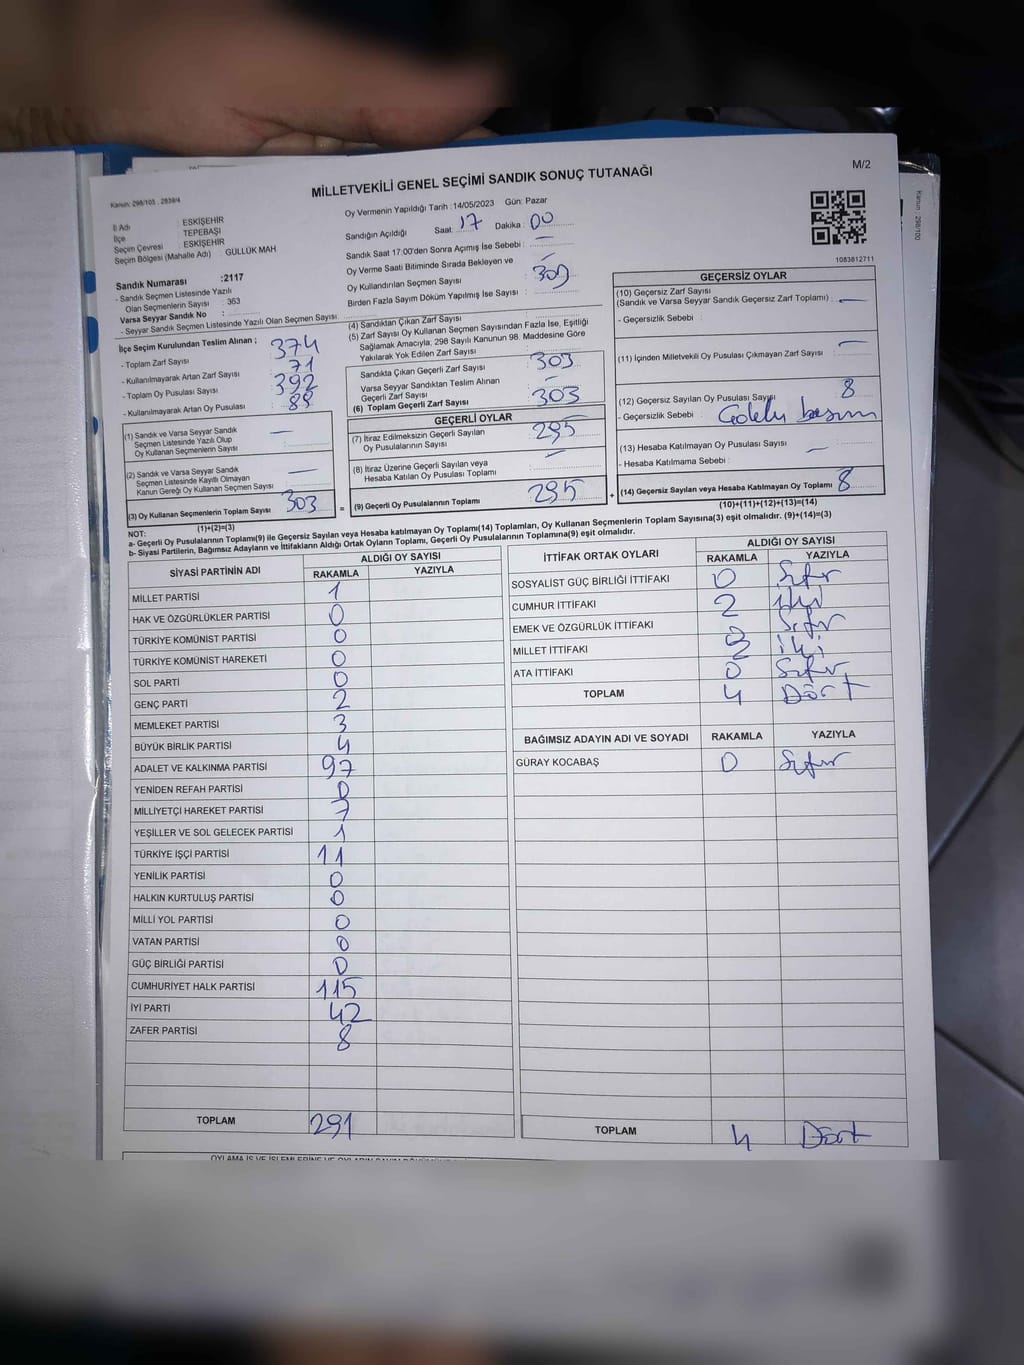 M/2
Kanun: 298/105 , 2839/4
MİLLETVEKİLİ GENEL SEÇİMİ SANDIK SONUÇ TUTANAĞI
Kanun : 298/100
1083812711
İl Adı : ESKİŞEHİR
İlçe : TEPEBAŞI
Seçim Çevresi : ESKİŞEHİR
Seçim Bölgesi (Mahalle Adı) : GÜLLÜK MAH
Sandık Numarası :2117
- Sandık Seçmen Listesinde Yazılı
Olan Seçmenlerin Sayısı : 363
Varsa Seyyar Sandık No :
- Seyyar Sandık Seçmen Listesinde Yazılı Olan Seçmen Sayısı:
Oy Vermenin Yapıldığı Tarih : 14/05/2023 Gün: Pazar
Sandığın Açıldığı Saat: 17 Dakika : 00
Sandık Saat 17:00'den Sonra Açılmış İse Sebebi : —
Oy Verme Saati Bitiminde Sırada Bekleyen ve
Oy Kullandırılan Seçmen Sayısı : —
Birden Fazla Sayım Döküm Yapılmış İse Sayısı :
İlçe Seçim Kurulundan Teslim Alınan ;
- Toplam Zarf Sayısı : 374
- Kullanılmayarak Artan Zarf Sayısı : 71
- Toplam Oy Pusulası Sayısı : 392
- Kullanılmayarak Artan Oy Pusulası :
(1) Sandık ve Varsa Seyyar Sandık
Seçmen Listesinde Yazılı Olup
Oy Kullanan Seçmenlerin Sayısı : —
(2) Sandık ve Varsa Seyyar Sandık
Seçmen Listesinde Kayıtlı Olmayan
Kanun Gereği Oy Kullanan Seçmen Sayısı : —
(3) Oy Kullanan Seçmenlerin Toplam Sayısı : 303
(1)+(2)=(3)
(4) Sandıktan Çıkan Zarf Sayısı :
(5) Zarf Sayısı Oy Kullanan Seçmen Sayısından Fazla İse, Eşitliği
Sağlamak Amacıyla; 298 Sayılı Kanunun 98. Maddesine Göre
Yakılarak Yok Edilen Zarf Sayısı :
Sandıkta Çıkan Geçerli Zarf Sayısı : 303
Varsa Seyyar Sandıktan Teslim Alınan
Geçerli Zarf Sayısı : —
(6) Toplam Geçerli Zarf Sayısı : 303
=
GEÇERLİ OYLAR
(7) İtiraz Edilmeksizin Geçerli Sayılan
Oy Pusulalarının Sayısı : 295
(8) İtiraz Üzerine Geçerli Sayılan veya
Hesaba Katılan Oy Pusulası Toplamı : —
(9) Geçerli Oy Pusulalarının Toplamı : 295
+
GEÇERSİZ OYLAR
(10) Geçersiz Zarf Sayısı
(Sandık ve Varsa Seyyar Sandık Geçersiz Zarf Toplamı) : —
- Geçersizlik Sebebi :
(11) İçinden Milletvekili Oy Pusulası Çıkmayan Zarf Sayısı : —
(12) Geçersiz Sayılan Oy Pusulası Sayısı : 8
- Geçersizlik Sebebi :
(13) Hesaba Katılmayan Oy Pusulası Sayısı : —
- Hesaba Katılmama Sebebi :
(14) Geçersiz Sayılan veya Hesaba Katılmayan Oy Toplamı : 8
(10)+(11)+(12)+(13)=(14)
NOT:
a- Geçerli Oy Pusulalarının Toplamı(9) ile Geçersiz Sayılan veya Hesaba katılmayan Oy Toplamı(14) Toplamları, Oy Kullanan Seçmenlerin Toplam Sayısına(3) eşit olmalıdır. (9)+(14)=(3)
b- Siyasi Partilerin, Bağımsız Adayların ve İttifakların Aldığı Ortak Oyların Toplamı, Geçerli Oy Pusulalarının Toplamına(9) eşit olmalıdır.
SİYASİ PARTİNİN ADI
ALDIĞI OY SAYISI
RAKAMLA YAZIYLA
MİLLET PARTİSİ 1
HAK VE ÖZGÜRLÜKLER PARTİSİ 0
TÜRKİYE KOMÜNİST PARTİSİ 0
TÜRKİYE KOMÜNİST HAREKETİ 0
SOL PARTİ 0
GENÇ PARTİ 2
MEMLEKET PARTİSİ 3
BÜYÜK BİRLİK PARTİSİ 4
ADALET VE KALKINMA PARTİSİ 97
YENİDEN REFAH PARTİSİ 0
MİLLİYETÇİ HAREKET PARTİSİ 7
YEŞİLLER VE SOL GELECEK PARTİSİ 1
TÜRKİYE İŞÇİ PARTİSİ 11
YENİLİK PARTİSİ 0
HALKIN KURTULUŞ PARTİSİ 0
MİLLİ YOL PARTİSİ 0
VATAN PARTİSİ 0
GÜÇ BİRLİĞİ PARTİSİ 0
CUMHURİYET HALK PARTİSİ 115
İYİ PARTİ 42
ZAFER PARTİSİ 8
TOPLAM 291
İTTİFAK ORTAK OYLARI
ALDIĞI OY SAYISI
RAKAMLA YAZIYLA
SOSYALİST GÜÇ BİRLİĞİ İTTİFAKI 0 Sıfır
CUMHUR İTTİFAKI 2 iki
EMEK VE ÖZGÜRLÜK İTTİFAKI 0 Sıfır
MİLLET İTTİFAKI 2 iki
ATA İTTİFAKI 0 Sıfır
TOPLAM 4 Dört
BAĞIMSIZ ADAYIN ADI VE SOYADI RAKAMLA YAZIYLA
GÜRAY KOCABAŞ 0 Sıfır
TOPLAM 4 Dört